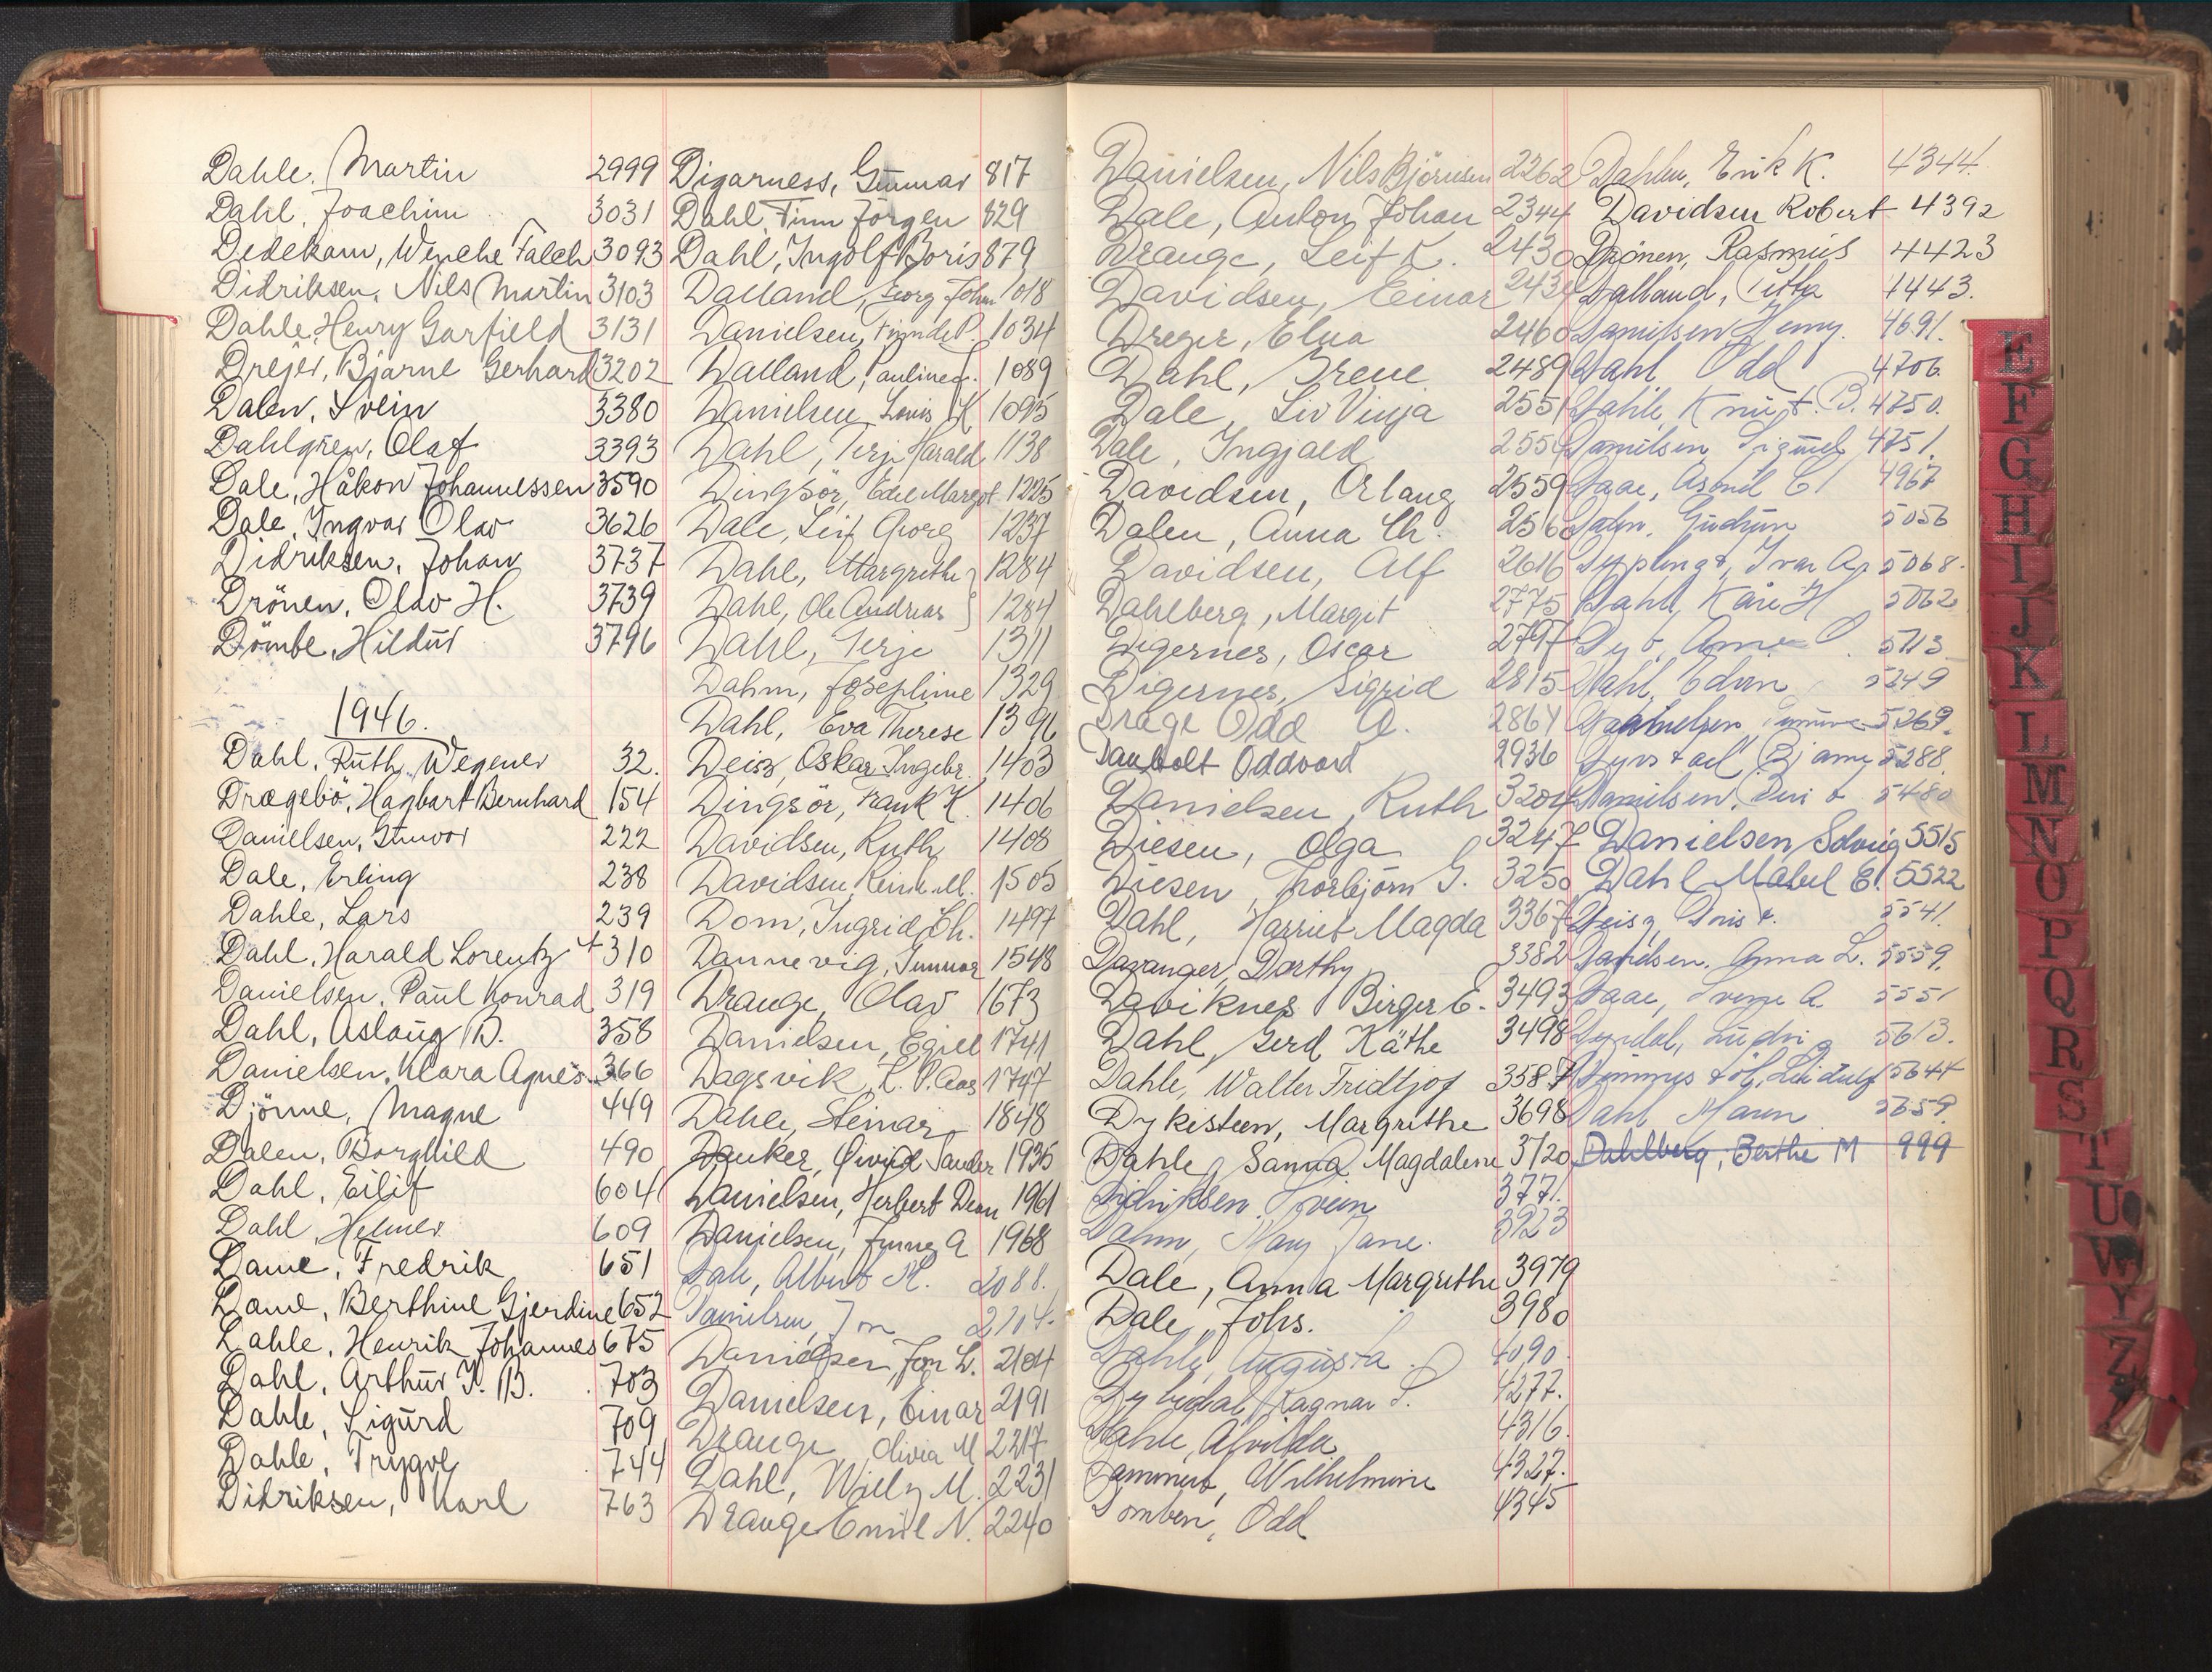 Dahle, Martin 2999
Dahl, Joachim 3031
Dedekam, Wenche Falch 3093
Didriksen, Nils Martin 3103
Dahle, Henry Garfield 3131
Drejer, Bjarne Gerhard 3202
Dalen, Svein 3380
Dahlgren, Olaf 3393
Dale, Håkon Johannessen 3590
Dale, Ingvar Olav 3626
Didriksen, Johan 3737
Drönen, Olav H. 3739
Dömbe, Hildur 3796
1946.
Dahl, Ruth Wegener 32.
Drægebö, Hagbart Bernhard 154
Danielsen, Gunvor 222
Dale, Erling 238
Dahle, Lars 239
Dahl, Harald Lorentz + 310
Danielsen, Paul Konrad 319
Dahl, Aslaug B. 358
Danielsen, Klara Agnes 366
Djönne, Magne 449
Dalen, Borghild 490
Dahl, Eilif 604
Dahl, Helmer 609
Dame, Fredrik 651
Dame, Berthine Gjerdine 652
Dahle, Henrik Johannes 675
Dahl, Arthur K. B. 703
Dahle, Sigurd 709
Dahle, Trygve 744
Didriksen, Karl 763
Digarness, Gunnar 817
Dahl, Finn Jörgen 829
Dahl, Ingolf Boris 879
Dalland, Georg Johan 1018
Danielsen, P. 1034
Dalland, Pauline J. 1089
Danielsen, Louis K 1095
Dahl, Terje Harald 1138
Dingsör, Edel Margot 1225
Dale, Leif Georg 1237
Dahl, Margrethe } 1284
Dahl, Ole Andreas } 1284
Dahl, Terje 1311
Dahm, Josephine 1329
Dahl, Eva Therese 1396
Deisz, Oskar Ingebr. 1403
Dingsör, Frank K. 1406
Davidsen, Ruth 1408
Davidsen, M. 1505
Dom, Ingrid Ch. 1497
Dannevig, Gunnar 1548
Drange, Olav 1673
Danielsen, Egill 1741
Dagsvik, K. P. Aas 1747
Dahle, Steinar 1848
Danker, Öivind Sander 1935
Danielsen, Herbert Dean 1961
Danielsen, Jenny A 1968
Dale, Albert M. 2088.
Danielsen, Jon 2104.
Danielsen, Jon L. 2104
Danielsen, Einar 2191
Drange, Olivia M 2217
Dahl, Willy M. 2231
Drange Emil N. 2240
Danielsen, Nils Björnsen 2262
Dale, Anton Johan 2344
Drange, Leif K. 2430
Davidsen, Einar 243
Dreger, Elna 2460
Dahl, Irene 2489
Dale, Liv Vinja 2551
Dale, Ingjald 255
Davidsen, Erlang 2559
Dalen, Anna Ch. 256
Davidsen, Alf 2616
Dahlberg, Margit 2775
Digernes, Oscar 2797
Digernes, Sigrid 2815
Drage Odd A. 2864
Daubolt Oddvard 2936
Danielsen, Ruth 3204
Diesen, Olga 3247
Diesen, Thorbjörn G. 3250
Dahl, Harriet Magda 3367
Davanger, Dorthy 3382
Daviknes Birger E. 3493
Dahl, Gerd Käthe 3498
Dahle, Walter Fridtjof 3587
Dykesteen, Margrethe 3698
Dahle, Sanna Magdalene 3720
Didriksen, Svein 377.
Dahm, Mary Jane. 3923
Dale, Anna Margrethe 3979
Dale, Johs. 3980
Dahle, Augusta 4090.
Dybedal, Ragnar S. 4277.
Dahle, Alvilde 4316.
Dammen, Wilhelmine 4327.
Domben, Odd 4345
Dahlen, Erik K. 4344.
Davidsen Robert 4392
Drönen, Rasmus 4423
Dalland, 4443.
Danielsen Henny. 4691.
Dahl Odd 4706.
Dahle Knut. B. 4750.
Danielsen 4751.
Daae, 4967
Dahm, Gudrun 5056
Ivar A. 5068.
Dahl, Kåre H 5062
5113
Dahl, Edvin 5249
Danielsen 5269.
Bjarne 5288.
Danielsen, 5480
Danielsen Solveig 5515
Dahl Mabel E. 5522
Deisz, 5541.
Davidsen. Anna L. 5559.
Daae, Sverre A. 5551
Ludvig 5613.
5644
Dahl Maren 5659.
Dahlberg, Berthe M 999
E
F
G
H
I
J
K
L
M
N
O
P
Q
R
S
T
U
W
Y
Z